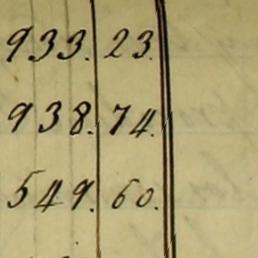 933. 23.
938. 74.
549. 60.